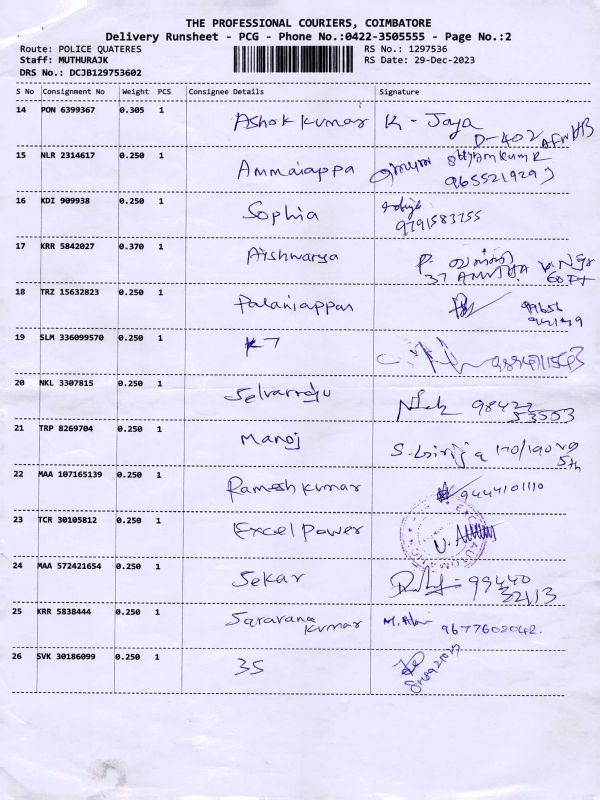 THE PROFESSIONAL COURIERS, COIMBATORE
Delivery Runsheet - PCG - Phone No.:0422-3505555 - Page No.:2
Route: POLICE QUATERES RS No.: 1297536
Staff: MUTHURAJK RS Date: 29-Dec-2023
DRS No.: DCJB129753602
S No Consignment No Weight PCS Consignee Details Signature
14 PON 6399367 0.305 1 Ashok kumar K - Jaya
D-402
15 NLR 2314617 0.250 1 Ammaiappa
9655219293
16 KDI 909938 0.250 1 Sophia
9791583755
17 KRR 5842027 0.370 1 Aishwarya P.
37
18 TRZ 15632823 0.250 1 Palaniappan
19 SLM 336099570 0.250 1 K7
20 NKL 3307815 0.250 1 Selvarraju 98422
53553
21 TRP 8269704 0.250 1 Manoj 170/190
5th
22 MAA 107165139 0.250 1 Ramesh kumar 9444101110
23 TCR 30105812 0.250 1 Excel power
24 MAA 572421654 0.250 1 Sekar 99440
32113
25 KRR 5838444 0.250 1 Saravana
kumar 9677602042.
26 SVK 30186099 0.250 1 3S